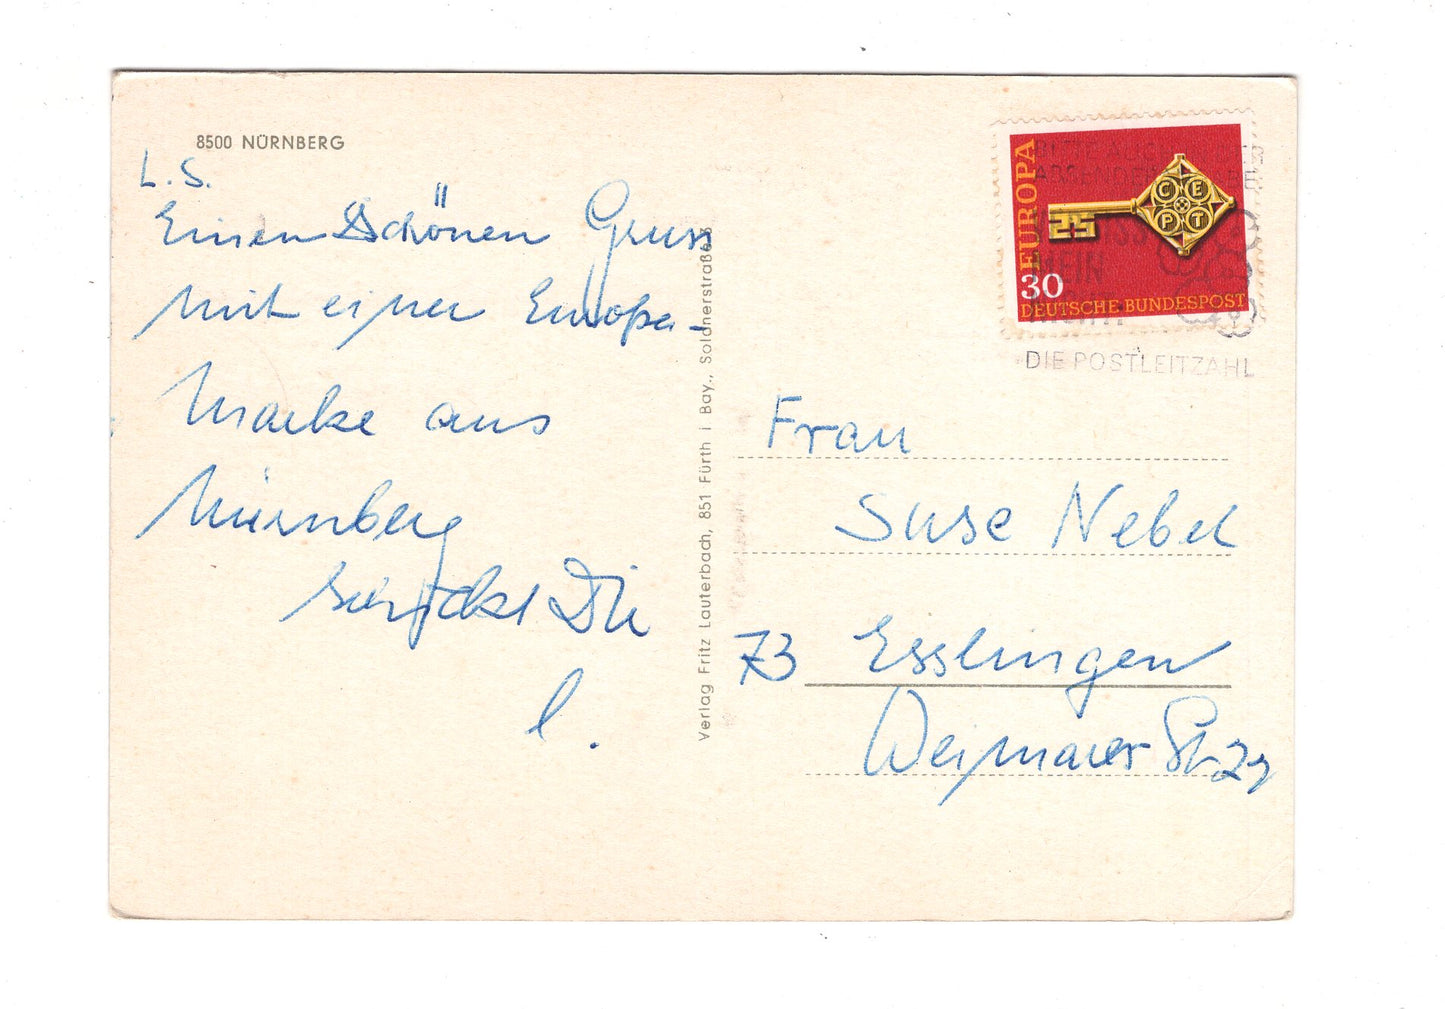 8500 NÜRNBERG
L. S.
Einen Schönen Gruss
mit einer Europa-
Marke aus
Nürnberg
schickt Dir
l.
Verlag Fritz Lauterbach, 851 Fürth i Bay., Soldnerstraße 3
EUROPA
CEPT
30
DEUTSCHE BUNDESPOST
MEIN
DIE POSTLEITZAHL
Frau
Suse Nebel
73 Esslingen
Weimarer Str.